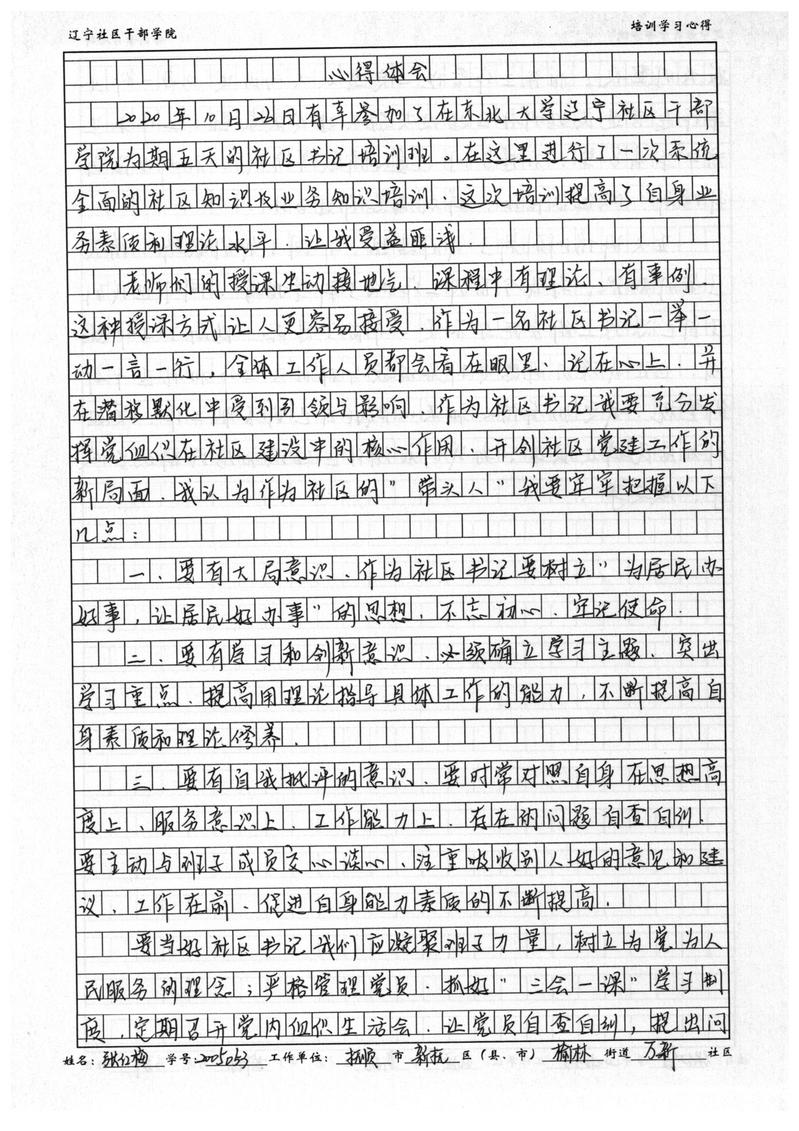 辽宁社区干部学院 培训学习心得
心得体会
2020年10月26日有幸参加了在东北大学辽宁社区干部
学院为期五天的社区书记培训班。在这里进行了一次系统
全面的社区知识及业务知识培训.这次培训提高了自身业
务素质和理论水平.让我受益匪浅.
老师们的授课生动接地气.课程中有理论、有事例.
这种授课方式让人更容易接受.作为一名社区书记一举一
动一言一行,全体工作人员都会看在眼里、记在心上.并
在潜移默化中受到引领与影响.作为社区书记我要充分发
挥党组织在社区建设中的核心作用.开创社区党建工作的
新局面.我认为作为社区的"带头人"我要牢牢把握以下
几点:
一.要有大局意识.作为社区书记要树立"为居民办
好事,让居民好办事"的思想.不忘初心.牢记使命.
二.要有学习和创新意识.必须确立学习主题.突出
学习重点.提高用理论指导具体工作的能力,不断提高自
身素质和理论修养.
三.要有自我批评的意识.要时常对照自身在思想高
度上、服务意识上、工作能力上.存在的问题自查自纠.
要主动与班子成员交心谈心.注重吸收别人好的意见和建
议.工作在前.促进自身能力素质的不断提高.
要当好社区书记我们应凝聚班子力量,树立为党为人
民服务的理念;严格管理党员.抓好"三会一课"学习制
度.定期召开党内组织生活会.让党员自查自纠,提出问
姓名:张红梅 学号:2005053 工作单位:抚顺 市 新抚 区(县、市) 榆林 街道 万新 社区